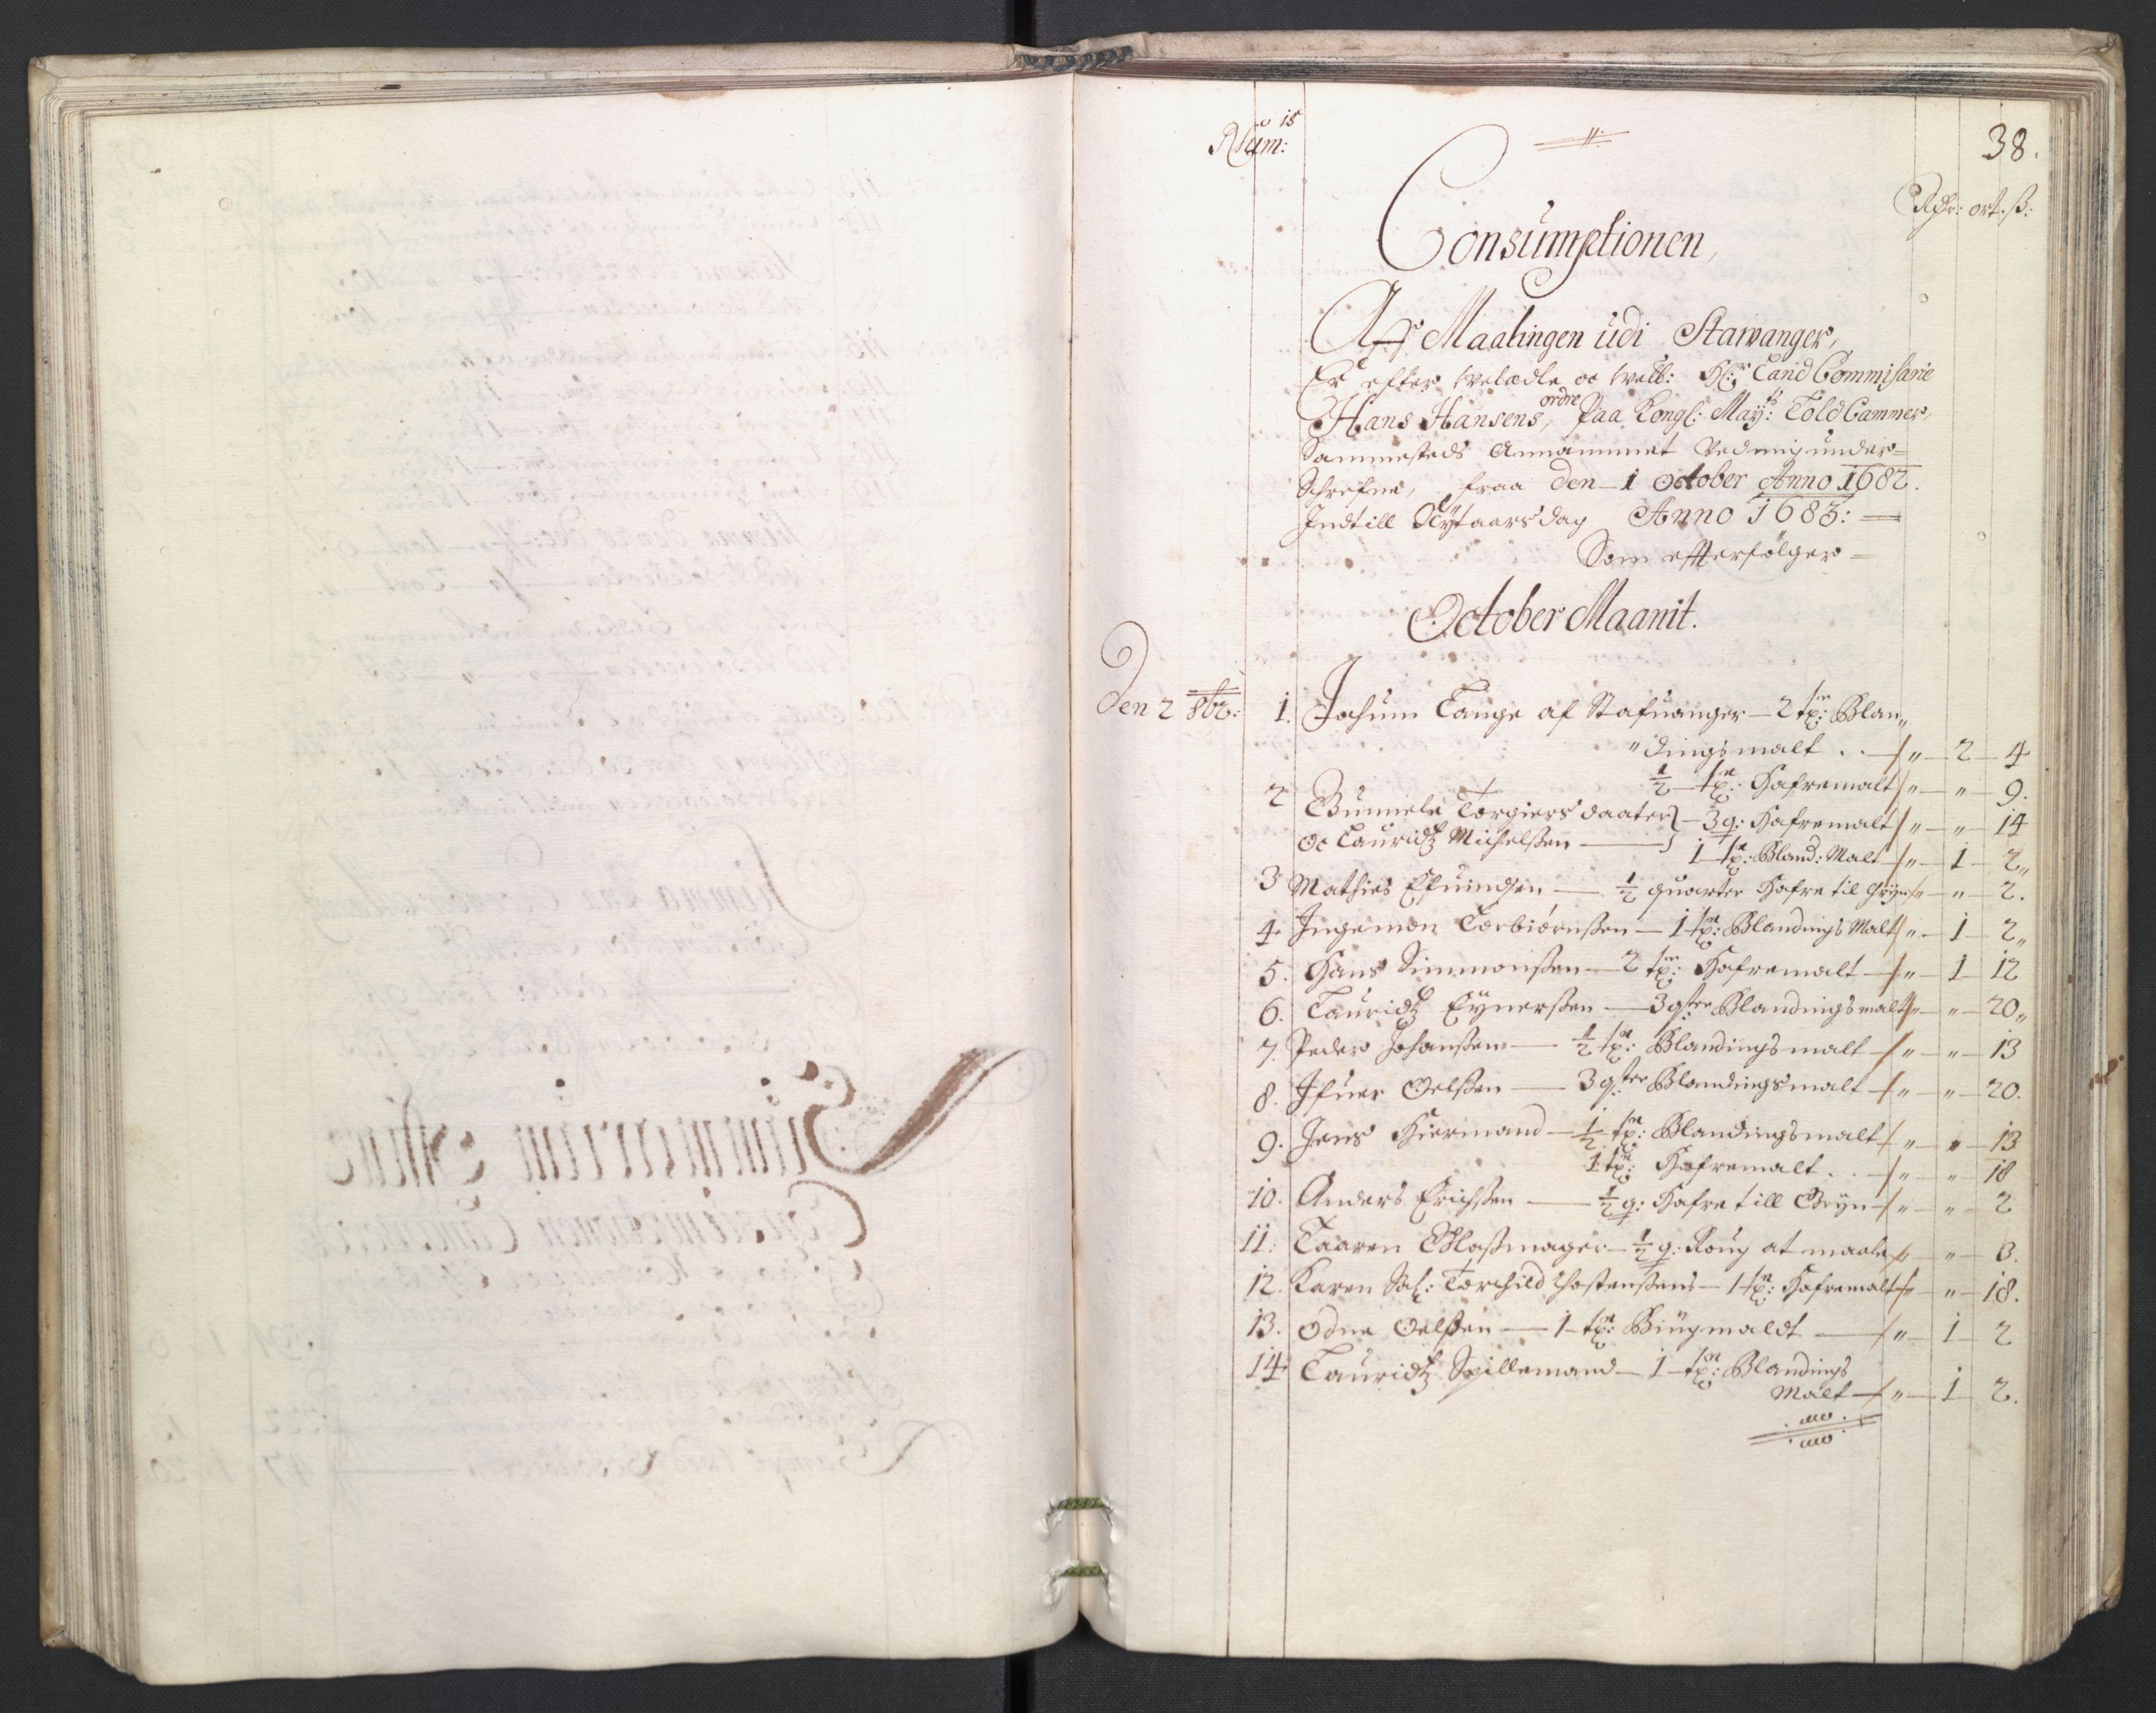 Num: 15
38.
Rdr: ort. ß:
Consumptionen,
Aff Maalingen udi Stawanger,
Er efter welædle oc welb: Hr: Land Commisarie
Hans Hansens, ordre Paa Kongl: May:ts Told Cammer,
Sammesteds Annammet Ved mig under=
Schrefne, fraa den 1 October Anno 1682.
Indtill Nytaarsdag Anno 1683:
Som efterfølger=
October Maanit.
Den 2 8br: 1. Jochum Lange af Stafuanger — 2 tr: Blan„
„dingsmalt . . „ — 2 — 4
½ tr: Hafremalt „ — „ — 9.
2 Gunnele Torgiers daater — 3 q: Hafremalt „ — „ — 14
oc Lauridtz Michelßen — 1 tr: Bland: Malt „ — 1 — 2„
3 Mathies — ½ quarter Hafre til Gryn „ — „ — 2.
4. Ingemon Torbiørnßen — 1 tr: Blandings Malt „ — 1 — 2„
5. Hans Simmonßen — 2 tr: Hafremalt — „ — 1 — 12
6. Lauridtz Eÿnerßen — 3 qter Blandingsmalt „ — „ — 20„
7. Peder Johanßen — ½ tr: Blandingsmalt — „ — „ — 13
8. Ifuer Oelßen — 3 qter Blandingsmalt — „ — „ — 20.
9. Jens Hiermand — ½ tr: Blandingsmalt „ — „ — 13
1 tr: Hafremalt . . — „ — „ — 18
10. Anders Erichßen — ½ q: Hafre till Gryn — „ — „ — 2
11: Maren Glaßmager — ½ q: Roug at maale — „ — „ — 3.
12. Karen Sal: Torchild — 1 tr: Hafremalt „ — „ — 18.
13. Odne Oelßen — 1 tr: Biugmaldt — „ — 1 — 2
14 Lauridtz Spillemand — 1 tr: Blandings
Malt — „ — 1 — 2.